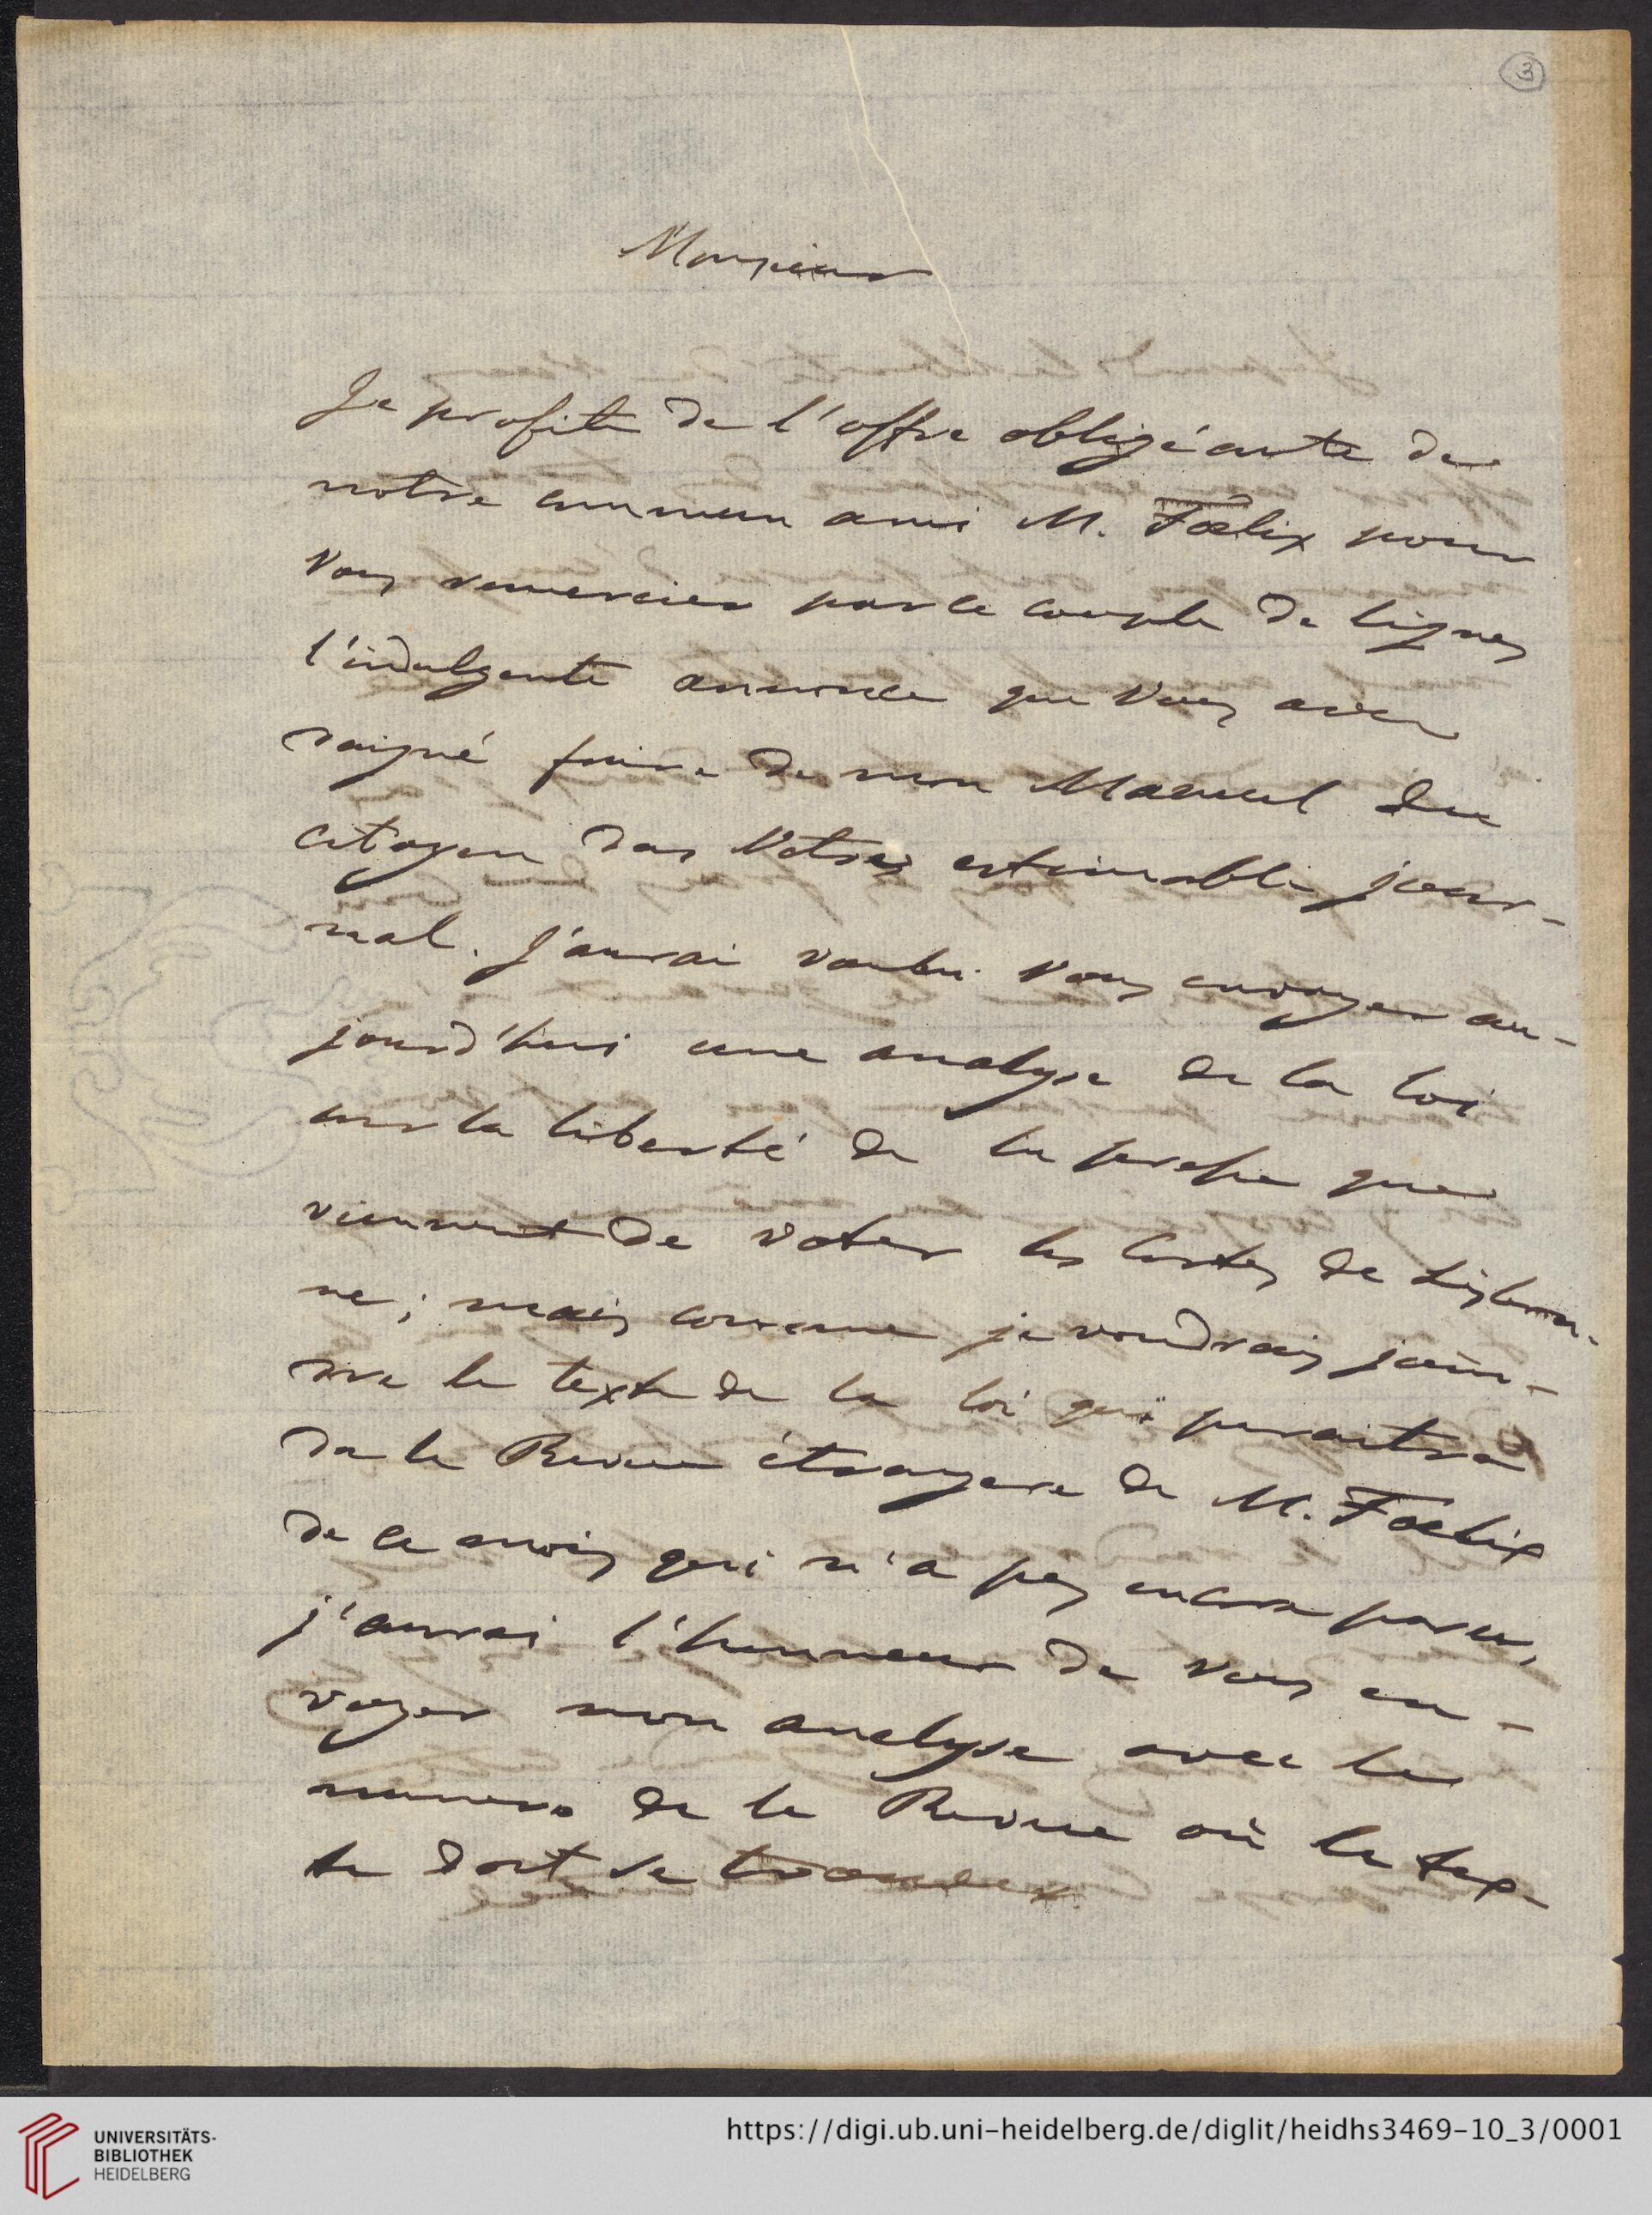 3
Monsieur
Je profite de l'offre obligéante de
notre commun ami M. Fœlix pour
Vous remercier par ce couple de lignes
l'indulgente annonce que Vous avez
daigné faire de mon Manuel du
citoyen dans Votre estimable jour-
nal. J'aurai voulu Vous envoyer au-
jourd'hui une analyse de la loi
sur la liberté de la presse que
viennent de voter les Cortes de Lisbon-
ne; mais comme je voudrais join-
dre le texte de la loi qui paraitra
da la Revue étrangere de M. Fœlix
de ce mois qui n'a pas encore paru,
j'aurai l'honneur de Vous en-
voyer mon analyse avec le
numero de la Revue où le tex-
te doit se trouver.
UNIVERSITÄTS-
BIBLIOTHEK
HEIDELBERG
https://digi.ub.uni-heidelberg.de/diglit/heidhs3469-10_3/0001